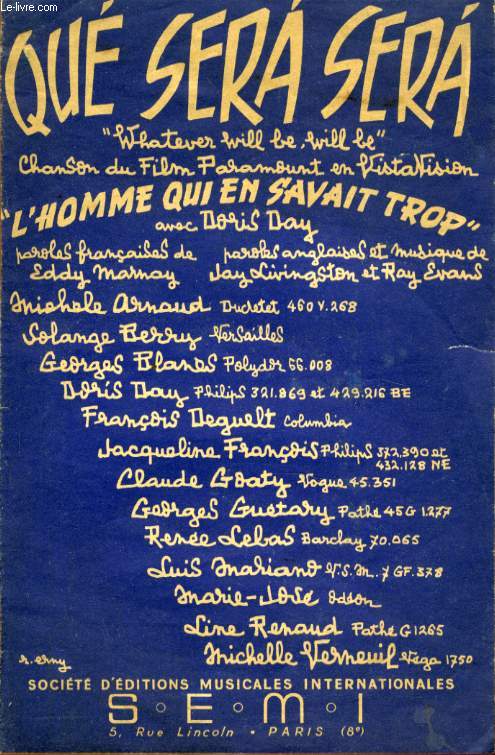 Le-livre.com
QUÉ SERÁ SERÁ
"Whatever will be, will be"
Chanson du Film Paramount en VistaVision
"L'HOMME QUI EN SAVAIT TROP"
avec Doris Day
paroles françaises de
Eddy Marnay
paroles anglaises et musique de
Jay Livingston et Ray Evans
Michele Arnaud Ducretet 460 V. 268
Solange Berry Versailles
Georges Blanes Polydor 66.008
Doris Day Philips 321.869 et 429.216 BE
François Deguelt Columbia
Jacqueline François Philips 372.390 et
432.128 NE
Claude Goaty Vogue 45.351
Georges Guétary Pathé 45 G 1.277
Renée Lebas Barclay 70.065
Luis Mariano V.S.M. 7 GF. 378
Marie-José Odéon
Line Renaud Pathé G 1265
Michelle Verneuil Véga 1750
r. erny
SOCIÉTÉ D'ÉDITIONS MUSICALES INTERNATIONALES
S·E·M·I
5, Rue Lincoln • PARIS (8e)